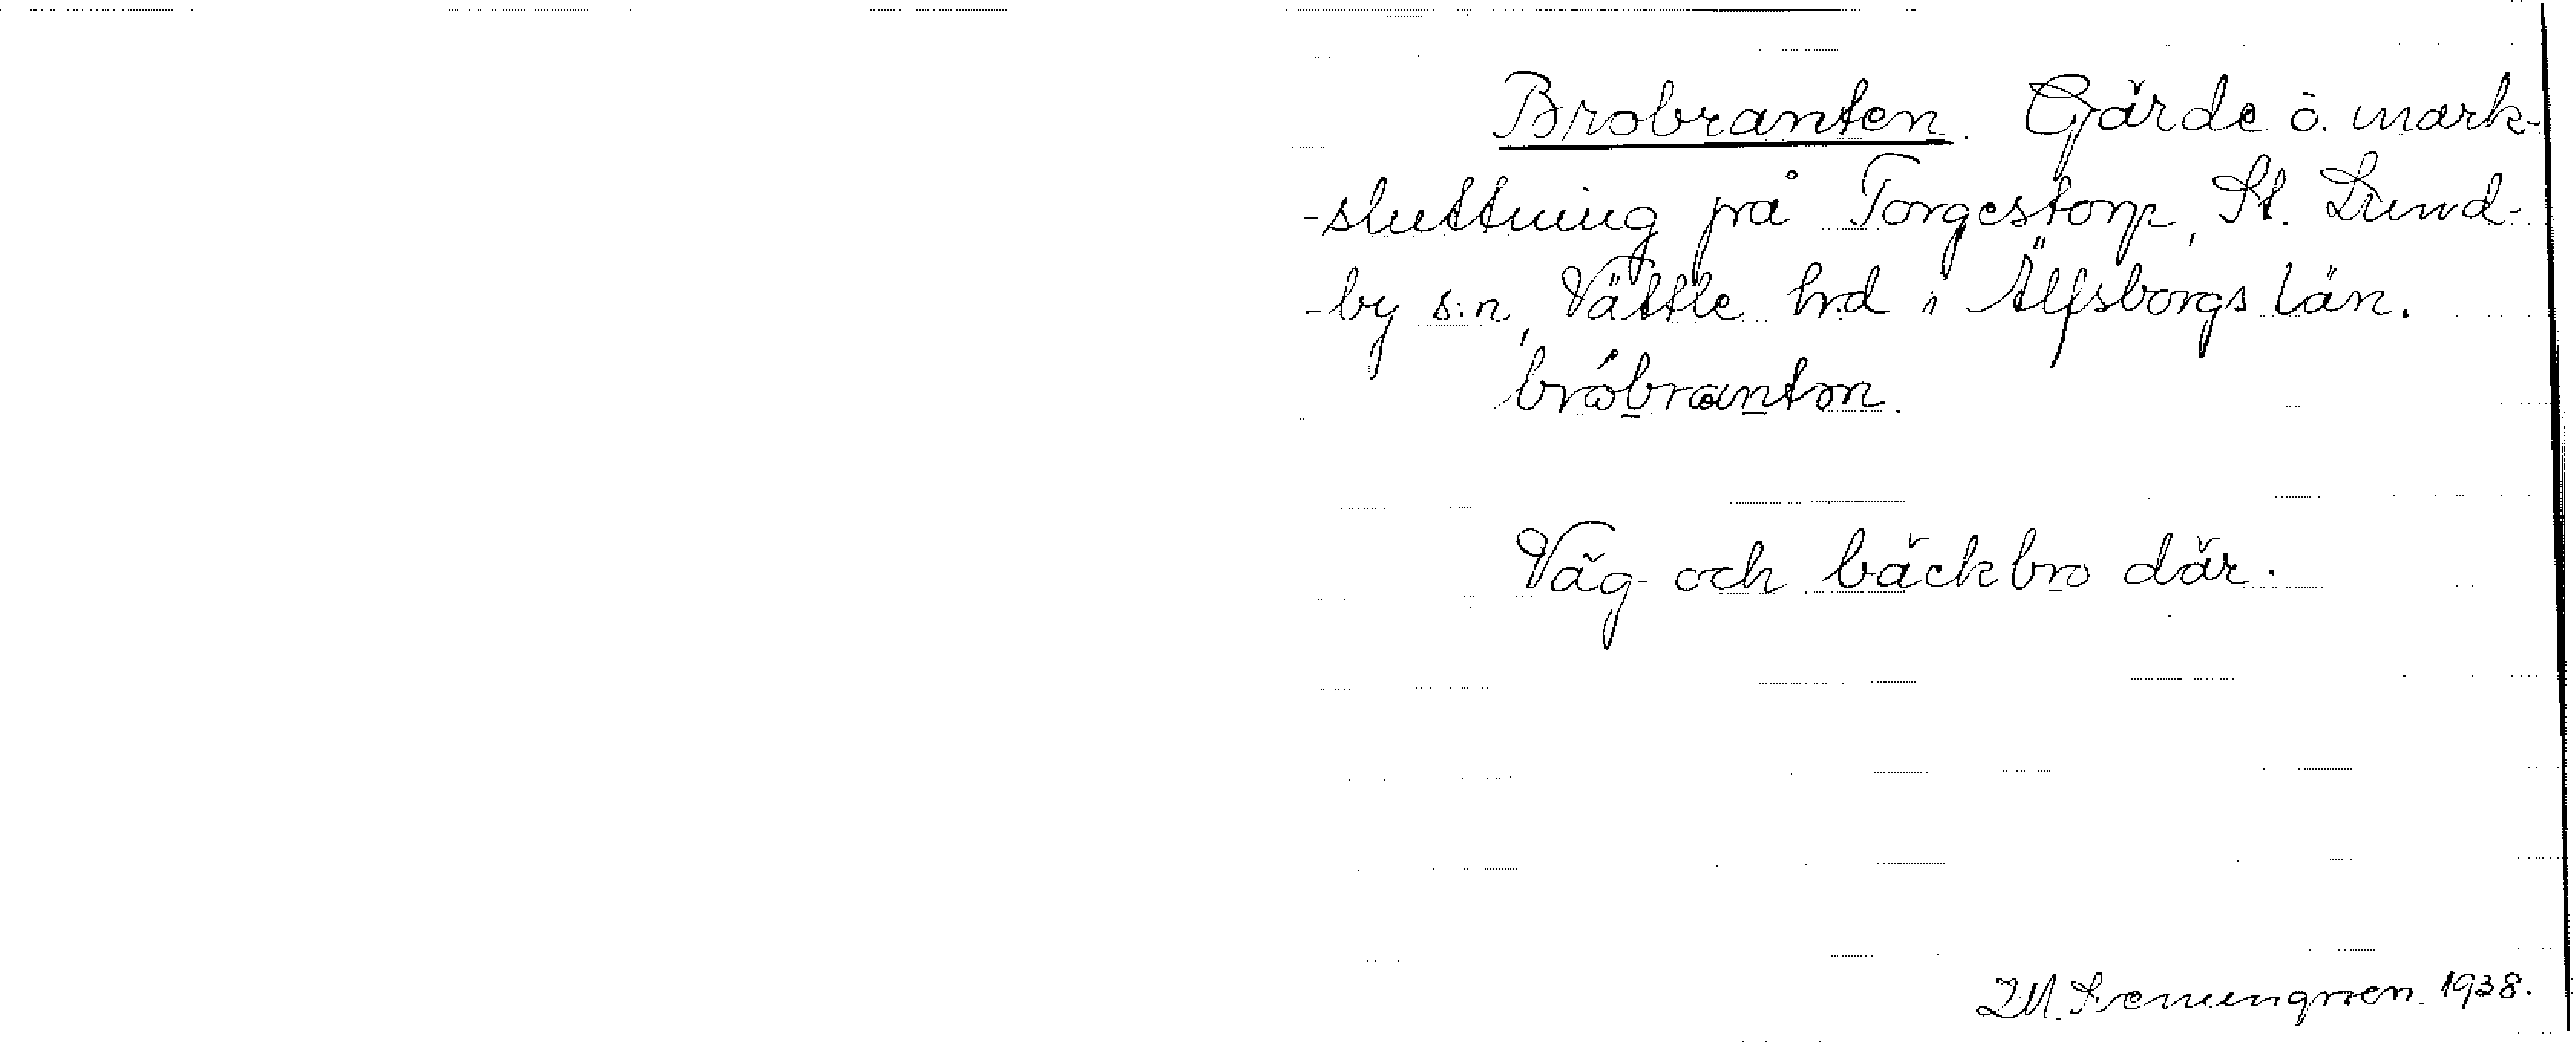 Brobranten. Gärde o. mark-
-sluttning på Torgestorp, St. Lund-
-by s:n, Vättle hrd i Älfsborgs län.
bróbrantən.
Väg och bäckbro där.
1938.